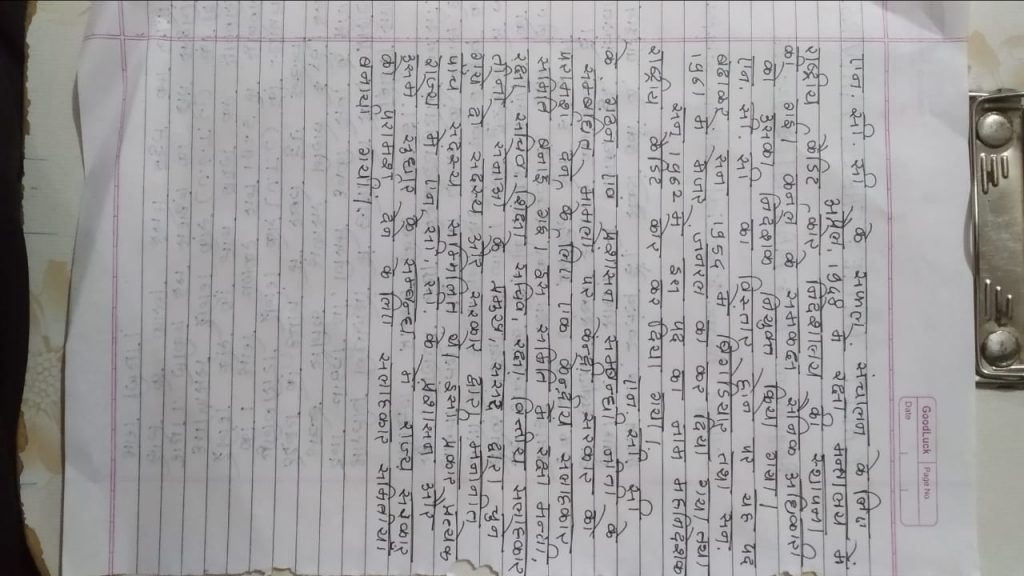 GoodLuck
Page No.
Date
एन. सी. सी के सफल संचालन के लिए
अप्रैल, 1948 में रक्षा मन्त्रालय में
राष्ट्रीय कैडिट कोर निदेशालय की स्थापना
की गई। कर्नल के समकक्ष सैनिक अधिकारी
को इसका निदेशक नियुक्त किया गया।
एन. सी. सी का विस्तार होने पर यह पद
बढ़कर सन 1956 में ब्रिगेडियर तथा सन्
1961 में मेजर जनरल का कर दिया गया तथा
सन् 1962 में इस पद का नाम महानिदेशक
राष्ट्रीय कैडिट कोर कर दिया गया।
एन. सी. सी
के गठन एवं प्रशासन सम्बन्धी नीति के
सम्बन्धित मामलों पर केन्द्रीय सरकार को
परामर्श देने के लिए एक केन्द्रीय सलाहकार
समिति बनाई गई। इस समिति में रक्षा मन्त्री,
रक्षा सचिव, शिक्षा सचिव, रक्षा वित्तीय सलाहकार
तीनों सेनाओं के प्रमुख, संसद द्वारा चुने
गये दो सदस्य और सरकार द्वारा मनोनीत
पाँच सदस्य सम्मिलित थे। इसी प्रकार प्रत्येक
राज्य में एन. सी. सी. के प्रशासन और
इसमें सुधार के सम्बन्ध में राज्य सरकार
को परामर्श देने के लिए सलाहकार समितियां
बनायी गयी।